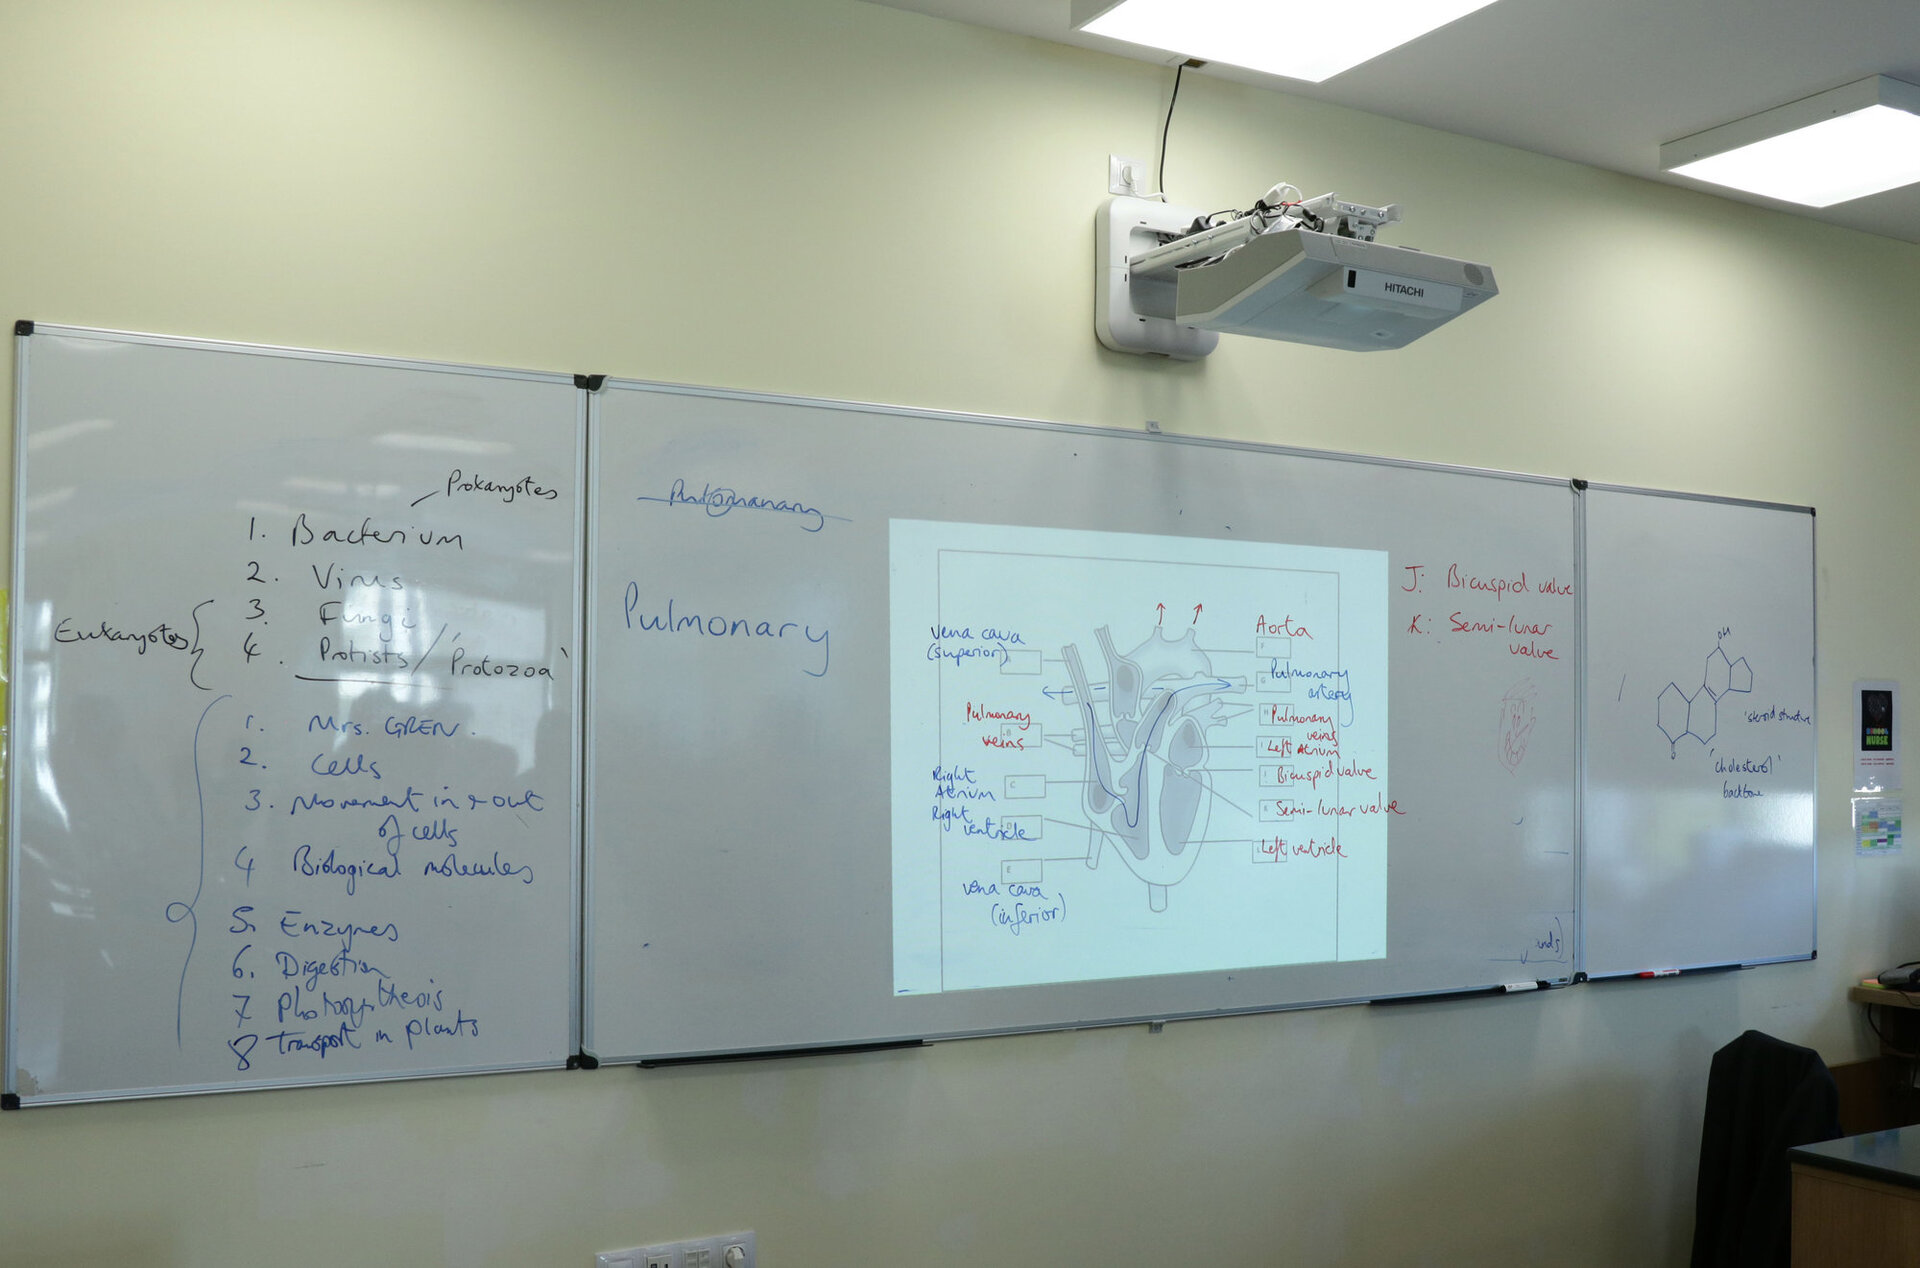 HITACHI
Prokaryotes
1. Bacterium
2. Virus
3. Fungi
4. Protists / Protozoa
Eukaryotes
1. Mrs. GREN.
2. Cells
3. Movement in & out
of cells
4 Biological molecules
5. Enzymes
6. Digestion
7 Photosyntheis
8 Transport in plants
Pulomanary
Pulmonary
Vena cava
(superior)
Pulmonary
veins
B
Right
Atrium
C
Right
ventricle
D
E
Vena cava
(inferior)
Aorta
F
G
Pulmonary
artery
H
Pulmonary
veins
Left Atrium
Bicuspid valve
K
Semi-lunar valve
Left ventricle
J: Bicuspid valve
K: Semi-lunar
valve
OH
'steroid structure
'cholesterol'
backbone
NURSE